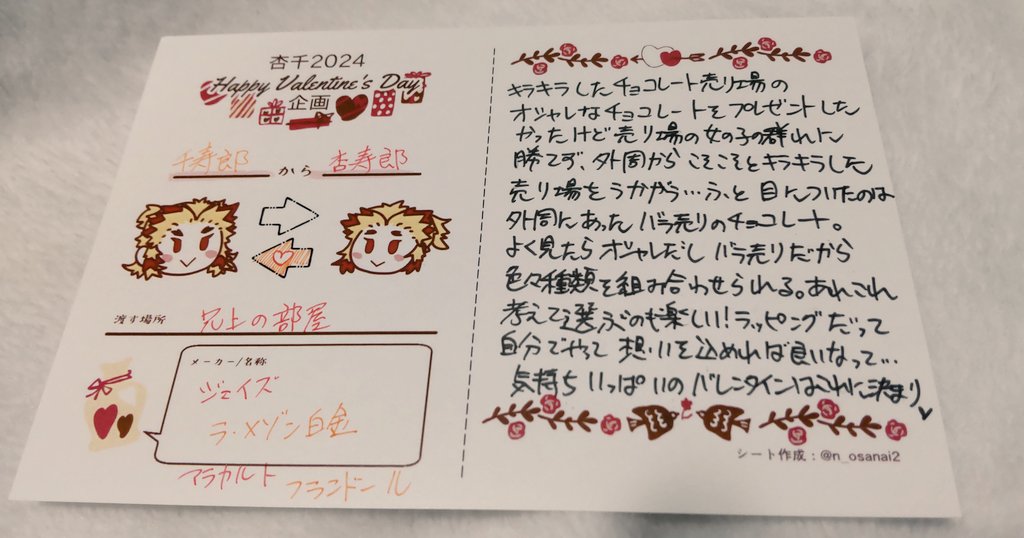 杏千2024
Happy Valentine's Day
企画
千寿郎 から 杏寿郎
渡す場所 兄上の部屋
メーカー/名称
ジェイズ
ラ・メゾン白金
アラカルト フランドール
キラキラしたチョコレート売り場の
オシャレなチョコレートをプレゼントした
かったけど売り場の女の子の群れに
勝てず、外周からこそこそとキラキラした
売り場をうかがう…ふと目についたのは
外周にあったバラ売りのチョコレート。
よく見たらオシャレだしバラ売りだから
色々種類を組み合わせられる。あれこれ
考えて選ぶのも楽しい!ラッピングだって
自分でやって想いを込めれば良いなって…
気持ちいっぱいのバレンタインはこれに決まり♥
シート作成:@n_osanai2